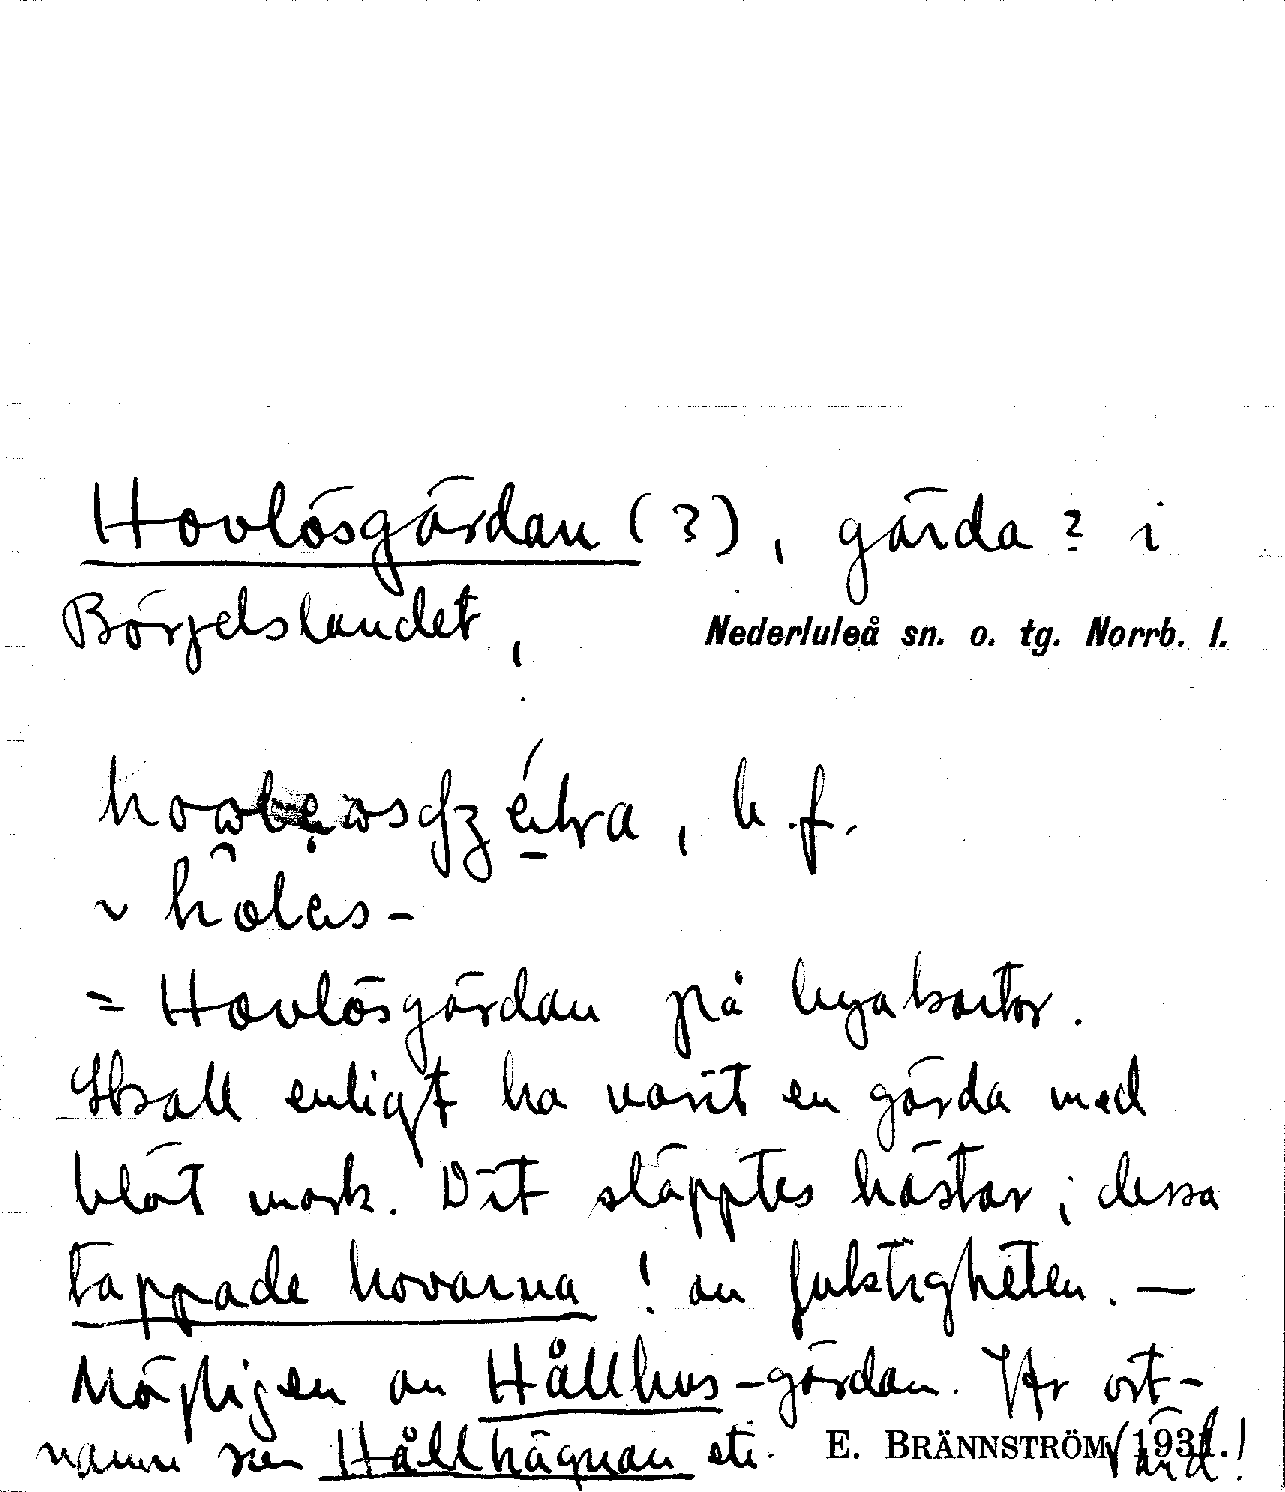 Hovlösgärdan (?), gärda ? i
Börjelslandet,
Nederluleå sn. o. tg. Norrb. l.
, b. f.
~ hölas-
= Hovlösgärdan på byakartor.
Skall enligt ha varit en gärda med
blöt mark. Dit släpptes hästar; dessa
tappade hovarna ! av fuktigheten. —
Möjligen av Hållhus-gärdan. Jfr ort-
namn som Hållhägnan etc.
E. BRÄNNSTRÖM 1931.